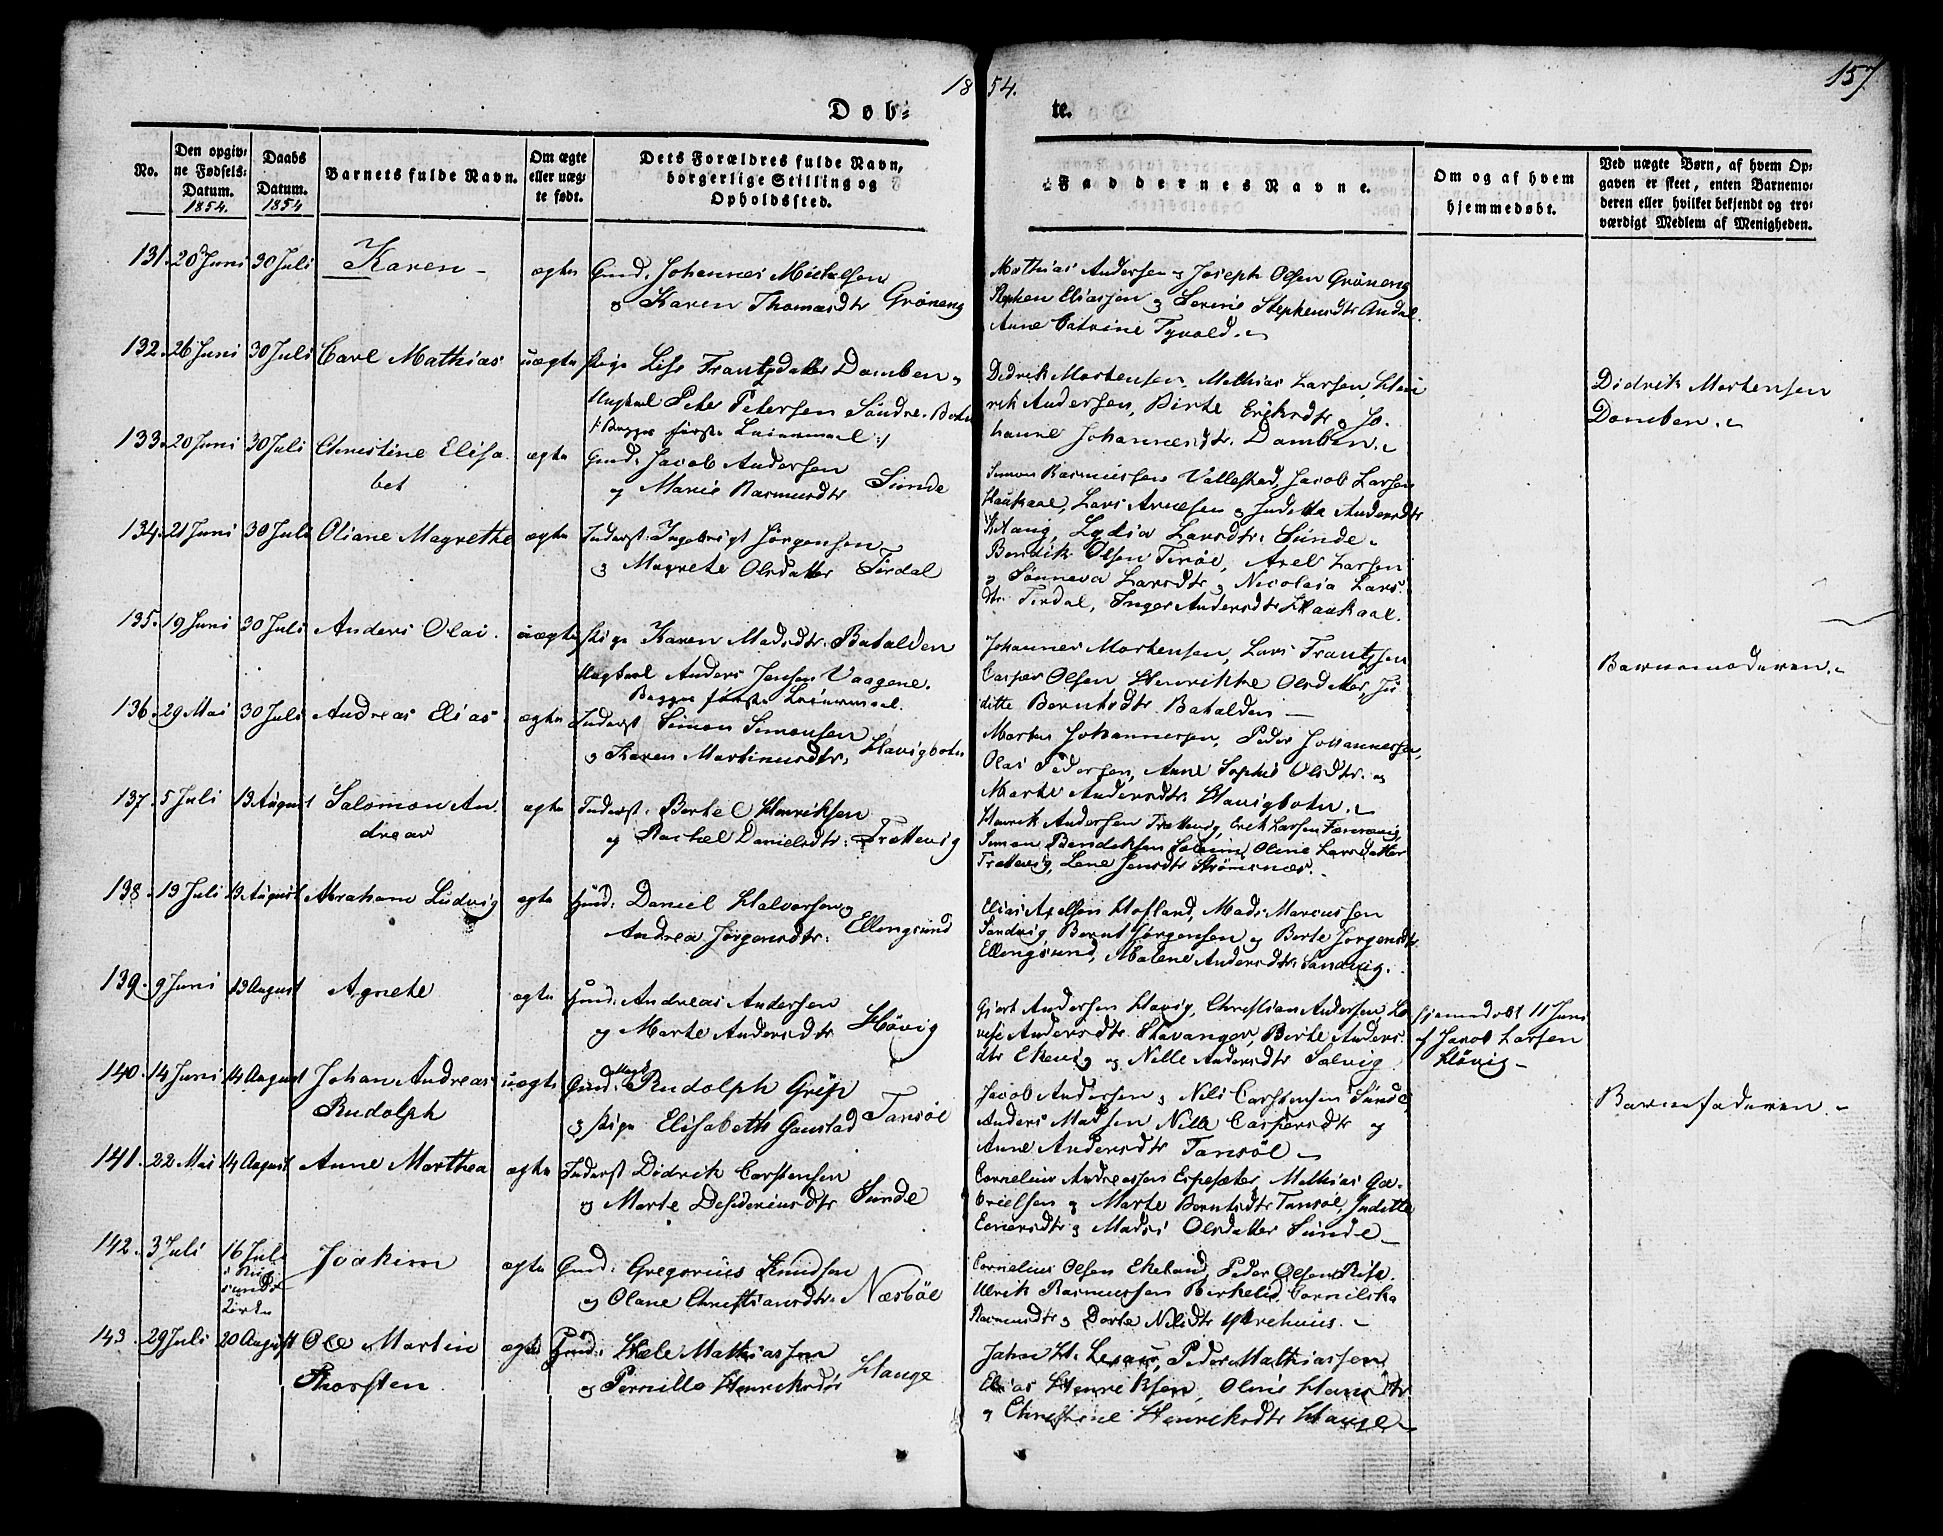 1854.
157
Døb-
te.
No.
Den opgiv-
ne Fødsels-
Datum.
1854.
Daabs
Datum.
1854
Barnets fulde Navn.
Om ægte
eller uæg-
te født.
Dets Forældres fulde Navn,
borgerlige Stilling og
Opholdssted.
Faddernes Navne.
Om og af hvem
hjemmedøbt.
Ved uægte Børn, af hvem Op-
gaven er skeet, enten Barnemo-
deren eller hvilket bekjendt og tro-
værdigt Medlem af Menigheden.
131. 20 Juni 30 Juli Karen ægte Gmd: Johannes Mickelsen
og Karen Thomasdtr Gröneng
Mathias Andersen og Joseph Olsen Gröneng
Stephen Eliassen og Serine Stephensdtr Andal
Anne Catrine Tyvold.
132. 26 Juni 30 Juli Carl Mathias uægte Pige Lise Frantzdatter Domben og
Ungkarl Peter Petersen Söndre Botn
/: Begges første Leiermaal :/
Didrik Mortensen, Mathias Larsen, Hen
rik Andersen, Birte Eriksdtr og Jo-
hanne Johannesdtr Domben.
Didrik Mortensen
Domben.
133. 20 Juni 30 Juli Christine Elisa
bet ægte Gmd: Jacob Andersen
og Marie Rasmusdtr Sunde
Simon Rasmussen Vallestad, Jacob Larsen
Haukaae, Lars Arnesen og Juditta Andersdtr
Lydia Larsdtr Sunde
134. 21 Juni 30 Juli Oliane Magrethe ægte Inderst: Ingebrigt Jörgensen
og Magrete Olsdatter Tirdal
Bendik Olsen Teröe, Axel Larsen
og Sönneva Larsdtr og Nicolaia Lars
dtr Tirdal, Inger Andersdtr Haukaae.
135. 19 Juni 30 Juli Anders Olai. uægte Pige Karen Madsdtr Batalden
Ungkarl Anders Jensen Vaagene.
Begges første Leiermaal.
Johannes Mortensen, Lars Frantzsen
Casper Olsen Henrikke Olsdatter, Ju
ditte Berntsdtr Batalden
Barnemoderen.
136. 29 Mai 30 Juli Andreas Elias ægte Inderst Simon Simonsen
og Karen Martinusdtr: Havigbotn
Morten Johannesen, Peder Johannesen,
Olai Pedersen, Anne Sophie Olsdtr. og
Marte Andersdtr Havigbotn.
137. 5 Juli 13 August Salomon An
dreas ægte Inderst: Berte C Henriksen
og Rachel Danielsdtr: Trettevig
Henrik Andersen Trettevig, Erik Larsen Færevaag,
Simon Bendiksen Solheim, Oline Larsdatter
Trettevig, Lene Jensdtr Strömsnæs.
138. 19 Juli 13 August Abraham Ludvig ægte Gmd: Daniel Halvorsen og
Andrea Jörgensdtr: Ellingsund
Elias Axelsen Hofland, Mads Marcussen
Sandvig Bernt Jörgensen og Berte Jörgensdtr
Ellingsund, Malene Andersdtr Sandvig.
139. 9 Juni 13 August Agnete ægte Gmd: Andreas Andersen
og Marte Andersdtr Hövig
Gjert Andersen Havig, Christian Andersen Lo
vise Andersdtr Stavanger, Berte Anders
dtr Ekevig og Nille Andersdtr Solvig
hjemmedøbt 11 Juni
af Jacob Larsen
Hövig
140. 14 Juni 14 August Johan Andreas
Rudolph uægte Gmd: Rudolph Grip
og Pige Elisabeth Gaustad Tansöe
Jacob Andersen og Nils Carstensen Sunde,
Anders Madsen Nille Caspersdtr og
Anne Andersdtr Tansöe
Barnefaderen.
141. 22 Mai 14 August Anne Marthea ægte Inderst Didrik Carstensen
og Marte Desideriusdtr Sunde
Cornelius Andreassen Espesæter Mathias Ga-
brielsen og Marte Berntsdtr Tansöe, Juditte
Einersdtr og Madsi Olsdatter Sunde
142. 3 Juli 16 Juli
i
sunds
Kirke Joakim ægte Gmd: Gregorius Knudsen
og Olane Christiansdtr: Næsböe
Cornelius Olsen Ekeland, Peder Olsen Risk
Ulrik Rasmussen Birkelid, Corneliska
Rasmusdtr og Dorte Nilsdtr Ytrehuus.
143. 29 Juli 20 August Ole Martin
Thorsten. ægte Gmd: Hæle Mathiassen
og Pernille Henriksdtr Hauge
Johan H. Lexau, Peder Mathiassen
Elias Henriksen, Oline Hansdtr
og Christine Henriksdtr Hauge